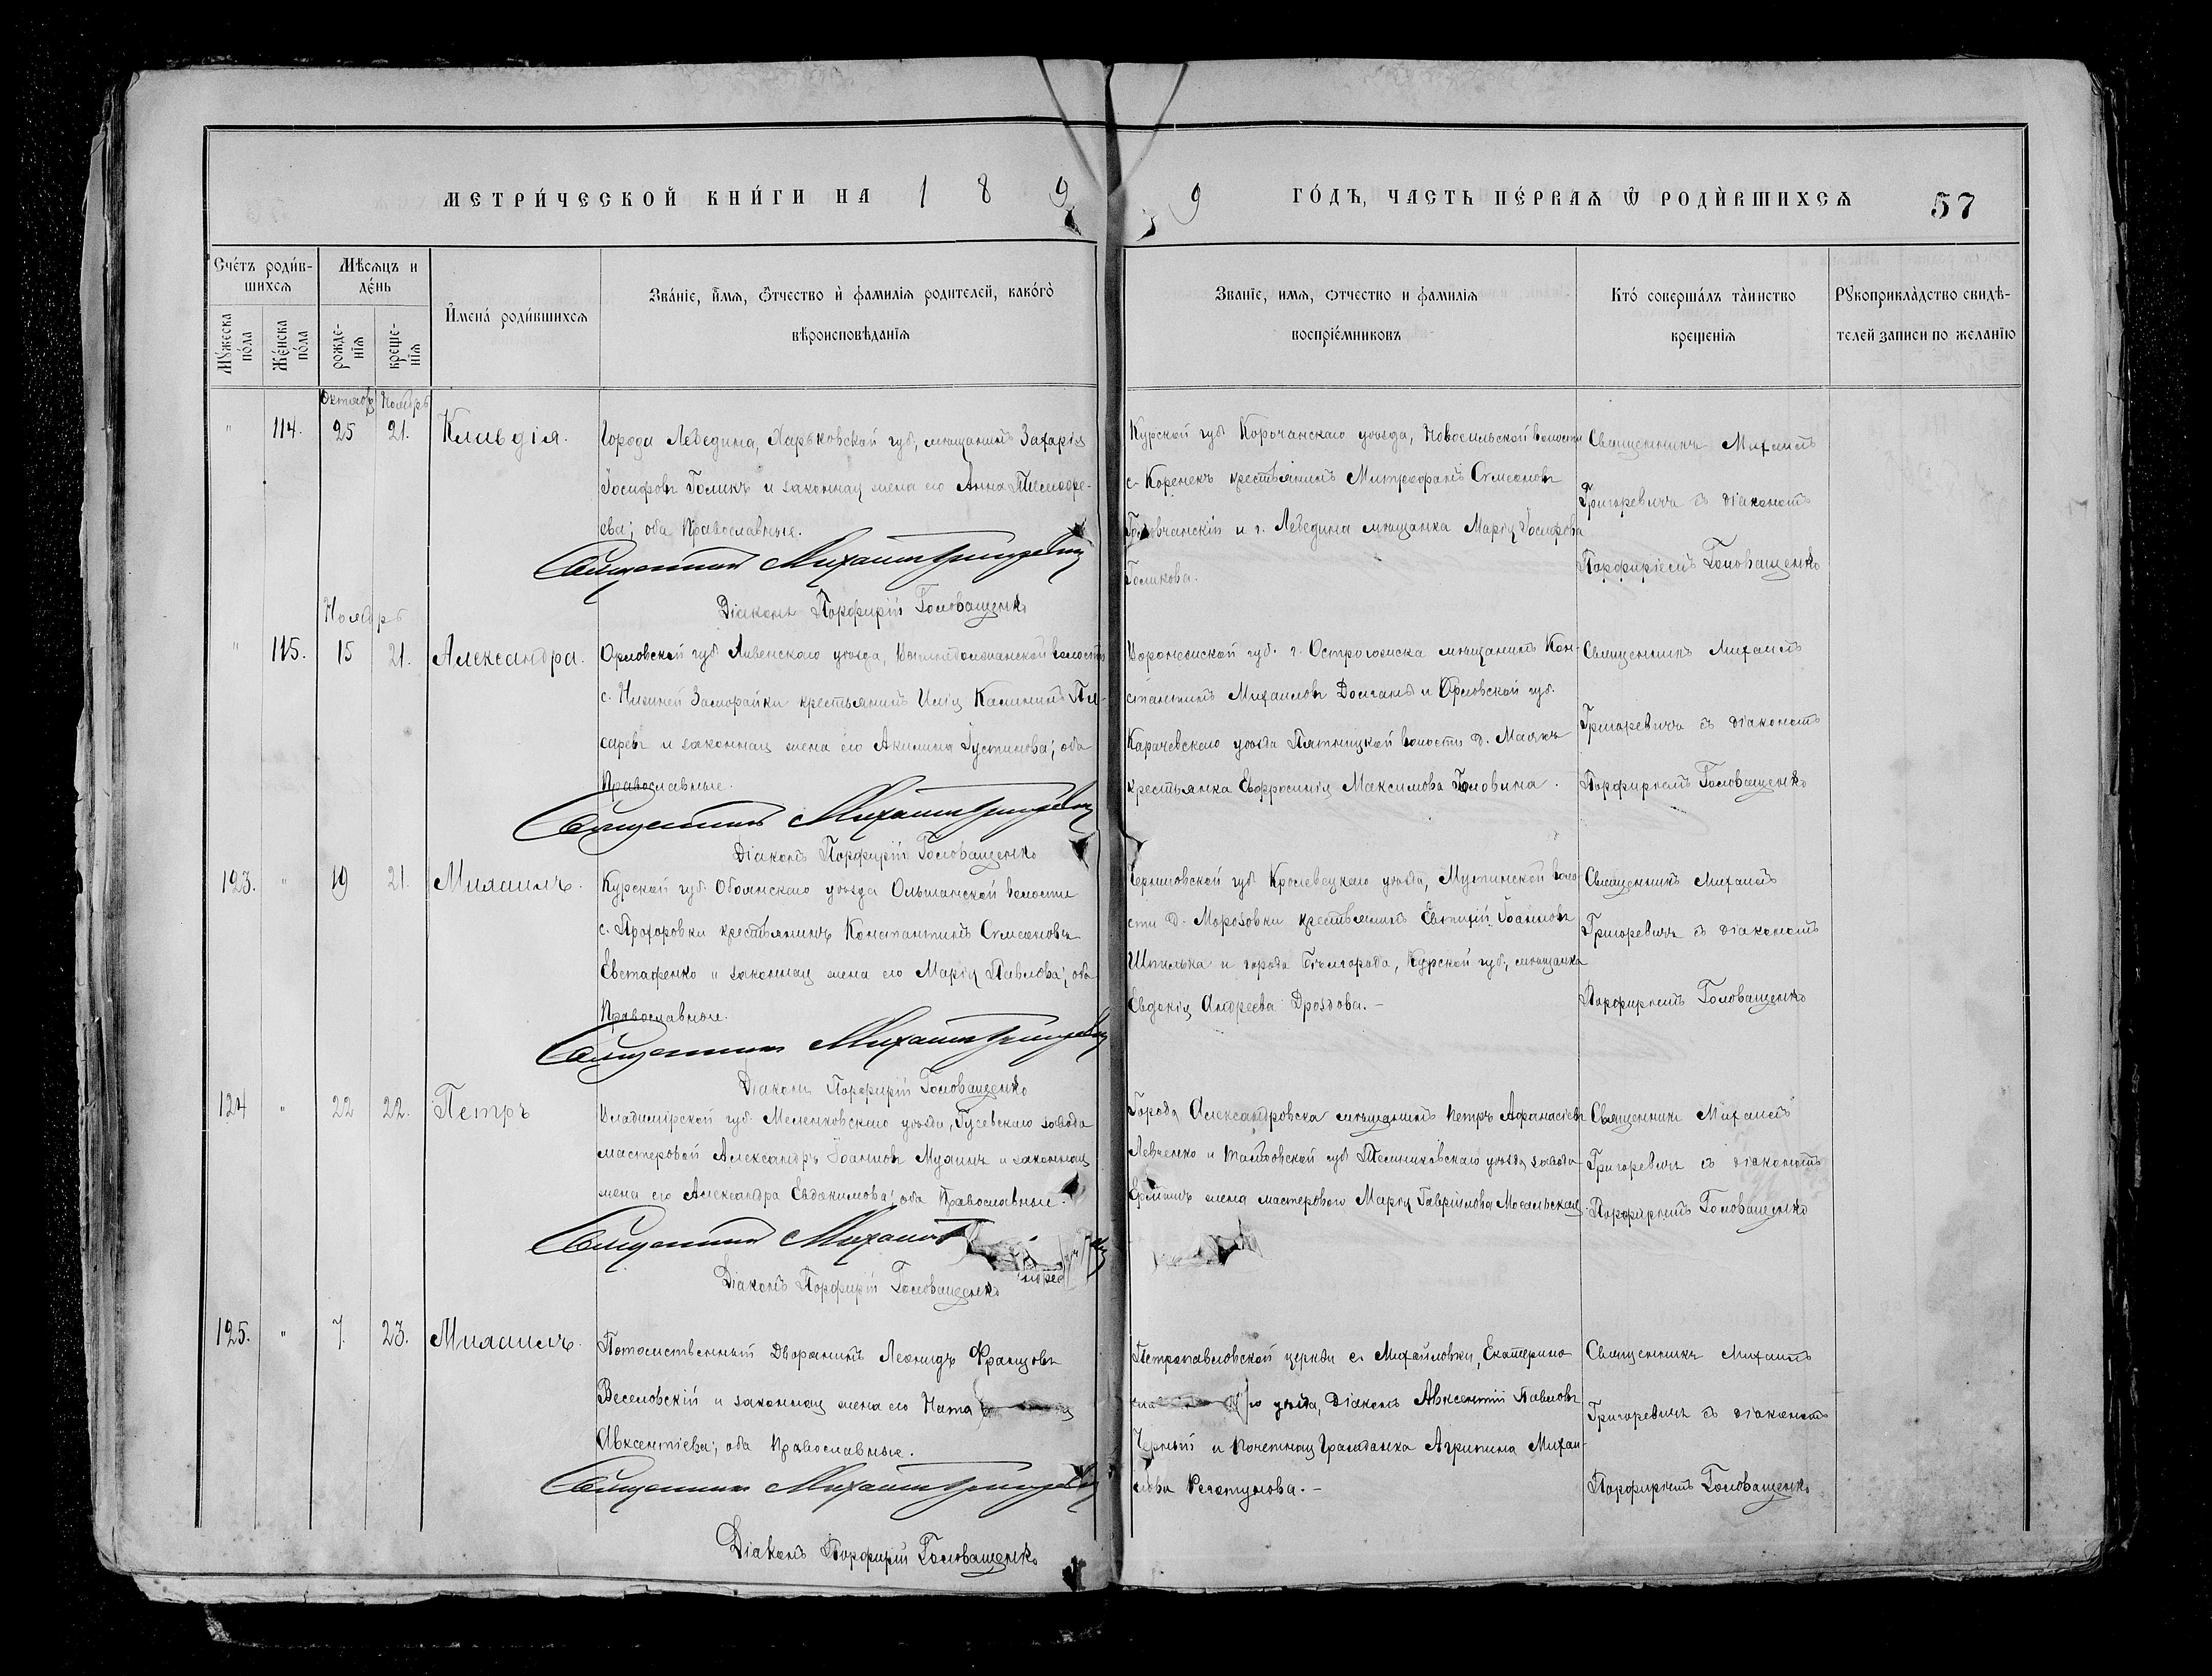 МЕТРИ́ЧЕСКОЙ КНИ́ГИ НА 1 8 9 9 ГО́ДЪ, ЧАСТЬ ПЕ́РВАѦ Ѿ РОДИ́ВШИХСѦ 57
Сче́тъ роди́в-
шихсѧ
Мѣсѧцъ и
де́нь
И҆мена́ роди́вшихсѧ
Зва́нїе, и҆́мѧ, ѻ҆́тчество и҆ фамилїѧ родителей, како́гѡ
вѣроисповѣданїѧ
Званїе, имѧ, ѻтчество и фамилїѧ
воспрїе́мниковъ
Кто́ соверша́лъ та́инство
крещенїѧ
Рꙋкоприкла́дство свидѣ-
телей записи по желанїю
Мꙋжеска
по́ла
Же́нска
по́ла
рожде-
нїѧ
креще-
нїѧ
Октябрь Ноябрь
" 114. 25 21. Клавдія.
Города Лебедина, Харьковской губ., мѣщанинъ Захарія
Іосифовъ Голикъ и законная жена его Анна
ева; оба Православные.
Священникъ Михаилъ Григоревичъ
Діаконъ Порфирій Головащенко
Курской губ. Корочанскаго уѣзда, Новосильской волости
с. Коренекъ крестьянинъ Митрофанъ Симеоновъ
и г. Лебедина мѣщанка Марія Іосифова
Голикова.
Священникъ Михаилъ
Григоревичъ съ діакономъ
Порфиріемъ Головащенко
Ноябрь
" 115. 15 21. Александра.
Орловской губ. Ливенскаго уѣзда, волости
с. Нижней Заморайки крестьянинъ Илія Калининъ Пи-
саревъ и законная жена его Акилина Іустинова; оба
Православные.
Священникъ Михаилъ Григоревичъ
Діаконъ Порфирій Головащенко
Воронежской губ. г. Острогожска мѣщанинъ Кон-
стантинъ Михаиловъ и Орловской губ.
Карачевскаго уѣзда Пятницкой волости д. Маякъ
крестьянка Евфросинія Максимова Головина.
Священникъ Михаилъ
Григоревичъ съ діакономъ
Порфиріемъ Головащенко
123. " 19 21. Михаилъ.
Курской губ. Обоянскаго уѣзда Ольшанской волости
с. Прохоровки крестьянинъ Константинъ Симеоновъ
Евстафенко и законная жена его Марія Павлова; оба
Православные.
Священникъ Михаилъ Григоревичъ
Діаконъ Порфирій Головащенко
Черниговской губ. Кролевецкаго уѣзда, Мутинской воло
сти д. Морозовки крестьянинъ Евтихій Іоанновъ
Шпилька и города Бѣлгорода, Курской губ., мѣщанка
Евдокія Андреева Дроздова.-
Священникъ Михаилъ
Григоревичъ съ діакономъ
Порфиріемъ Головащенко
124 " 22 22. Петръ
Владимірской губ. Меленковскаго уѣзда, Гусевскаго завода
мастеровой Александръ Іоанновъ Мухинъ и законная
жена его Александра Евдокимова; оба Православные.
Священникъ Михаилъ
Діаконъ Порфирій Головащенко
Города Александровска мѣщанинъ Петръ Афанасіевъ
Левченко и Тамбовской губ. Темниковскаго уѣзда, завода
жена мастероваго Марія Гавріилова
Священникъ Михаилъ
Григоревичъ съ діакономъ
Порфиріемъ Головащенко
125. " 7. 23. Михаилъ.
Потомственный Дворянинъ Леонидъ Францовъ
Веселовскій и законная жена его Ната
Авксентіева; оба Православные.
Священникъ Михаилъ Григоревичъ
Діаконъ Порфирій Головащенко
Петропавловской церкви с. Михайловки, Екатерино
сла го уѣзда, Діаконъ Авксентій Павловъ
Черный и Почетная Гражданка Агрипина Михаи-
лова
Священникъ Михаилъ
Григоревичъ съ діакономъ
Порфиріемъ Головащенко